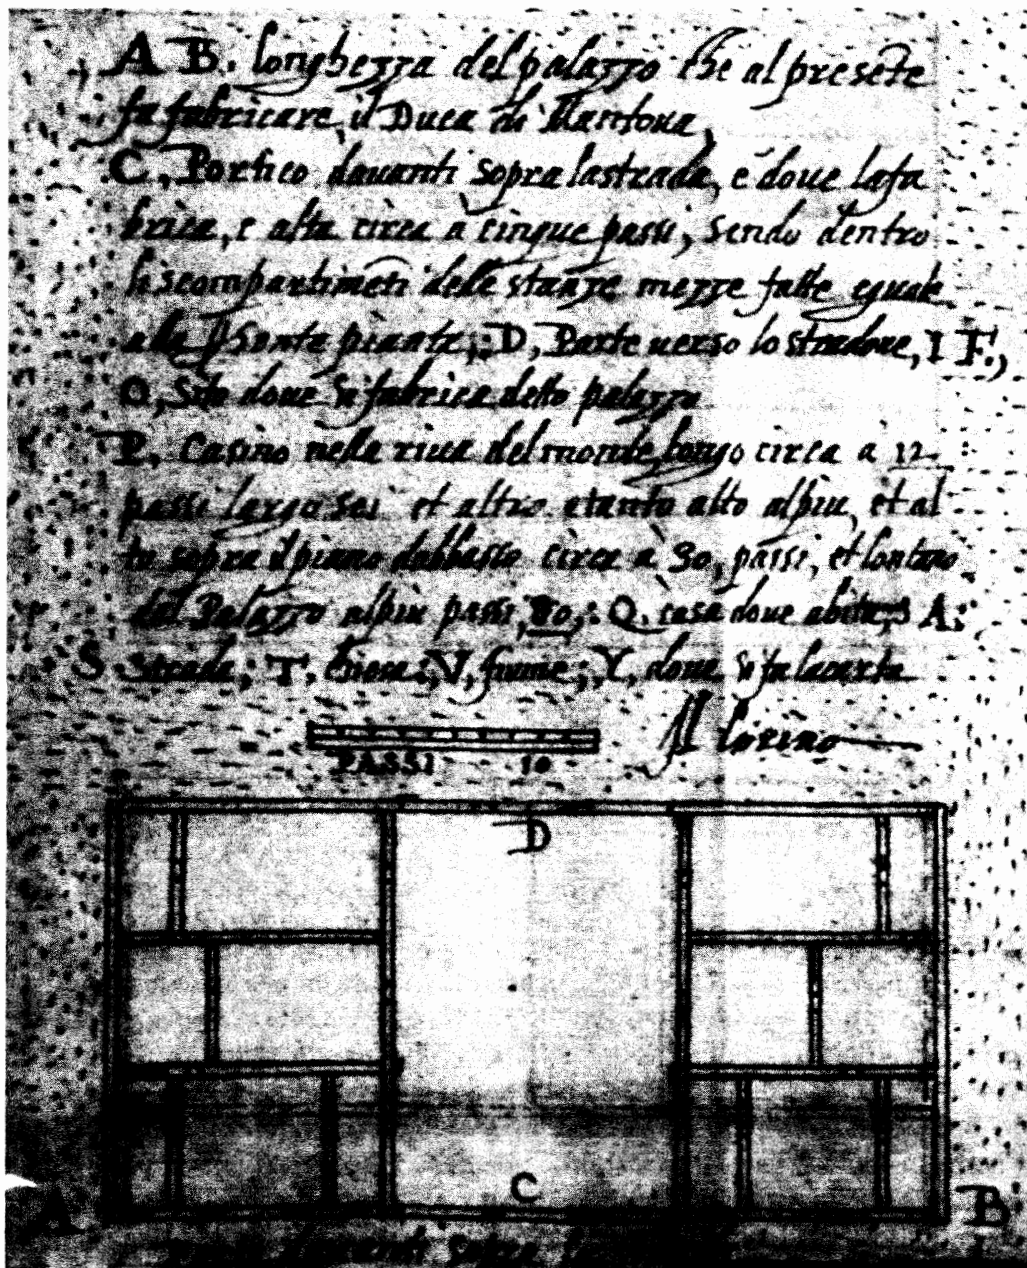 A B. longhezza del palazzo che al presẽte
fa fabricare il Duca di Mantoua,
C, Portico dauanti sopra la strada, e doue la fa
brica, e alta circa à cinque passi, sendo dentro
li scompartimẽti delle stanze mezze fatte eguale
alla pianta; D, Parte uerso lo stradone, I F.,
O, Sito doue si fabrica detto palazzo
P, Casino nella riua del monte, longo circa à 12
passi largo sei et altro etanto alto al piu, et al
to sopra il piano dabbasso circa à 30, passi, et lontano
dal Palazzo al piu passi, 80,: Q. casa doue abita S A;
S Strada; T, chiesa; V, fiume; Y, doue si fa la carta
PASSI 10
D
C
A B
dauanti sopra